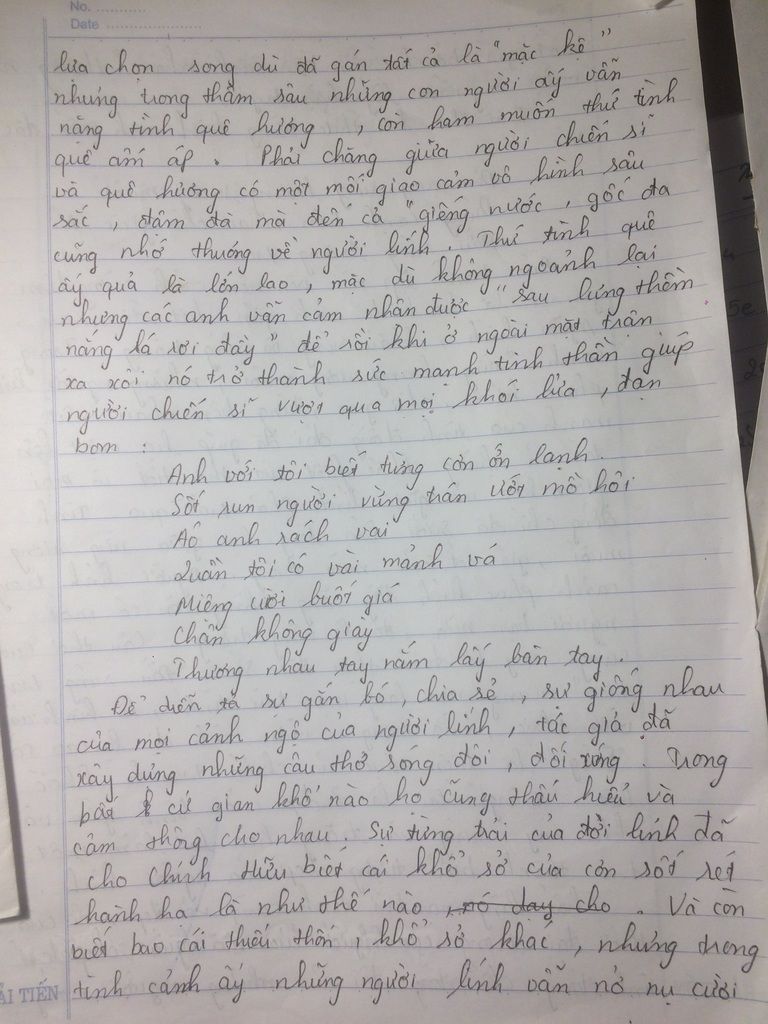 No. ............
Date ......................
lựa chọn song dù đã gán tất cả là "mặc kệ"
nhưng trong thâm sâu những con người ấy vẫn
nặng tình quê hương , còn ham muốn thứ tình
quê ấm áp . Phải chăng giữa người chiến sĩ
và quê hương có một mối giao cảm vô hình sâu
sắc , đậm đà mà đến cả "giếng nước , gốc đa
cũng nhớ thương về người lính . Thứ tình quê
ấy quả là lớn lao , mặc dù không ngoảnh lại
nhưng các anh vẫn cảm nhận được "sau lưng thềm
nắng lá rơi đầy" để rồi khi ở ngoài mặt trận
xa xôi nó trở thành sức mạnh tinh thần giúp
người chiến sĩ vượt qua mọi khói lửa , đạn
bom :
Anh với tôi biết từng cơn ớn lạnh .
Sốt run người vừng trán ướt mồ hôi
Áo anh rách vai
Quần tôi có vài mảnh vá
Miệng cười buốt giá
Chân không giày
Thương nhau tay nắm lấy bàn tay .
Để diễn tả sự gắn bó , chia sẻ , sự giống nhau
của mọi cảnh ngộ của người lính , tác giả đã
xây dựng những câu thơ sóng đôi , đối xứng . Trong
bất cứ gian khổ nào họ cũng thấu hiểu và
cảm thông cho nhau . Sự từng trải của đời lính đã
cho Chính Hữu biết cái khổ sở của cơn sốt rét
hành hạ là như thế nào , nó day cho . Và còn
biết bao cái thiếu thốn , khổ sở khác , nhưng trong
tình cảnh ấy những người lính vẫn nở nụ cười
ẢI TIẾN